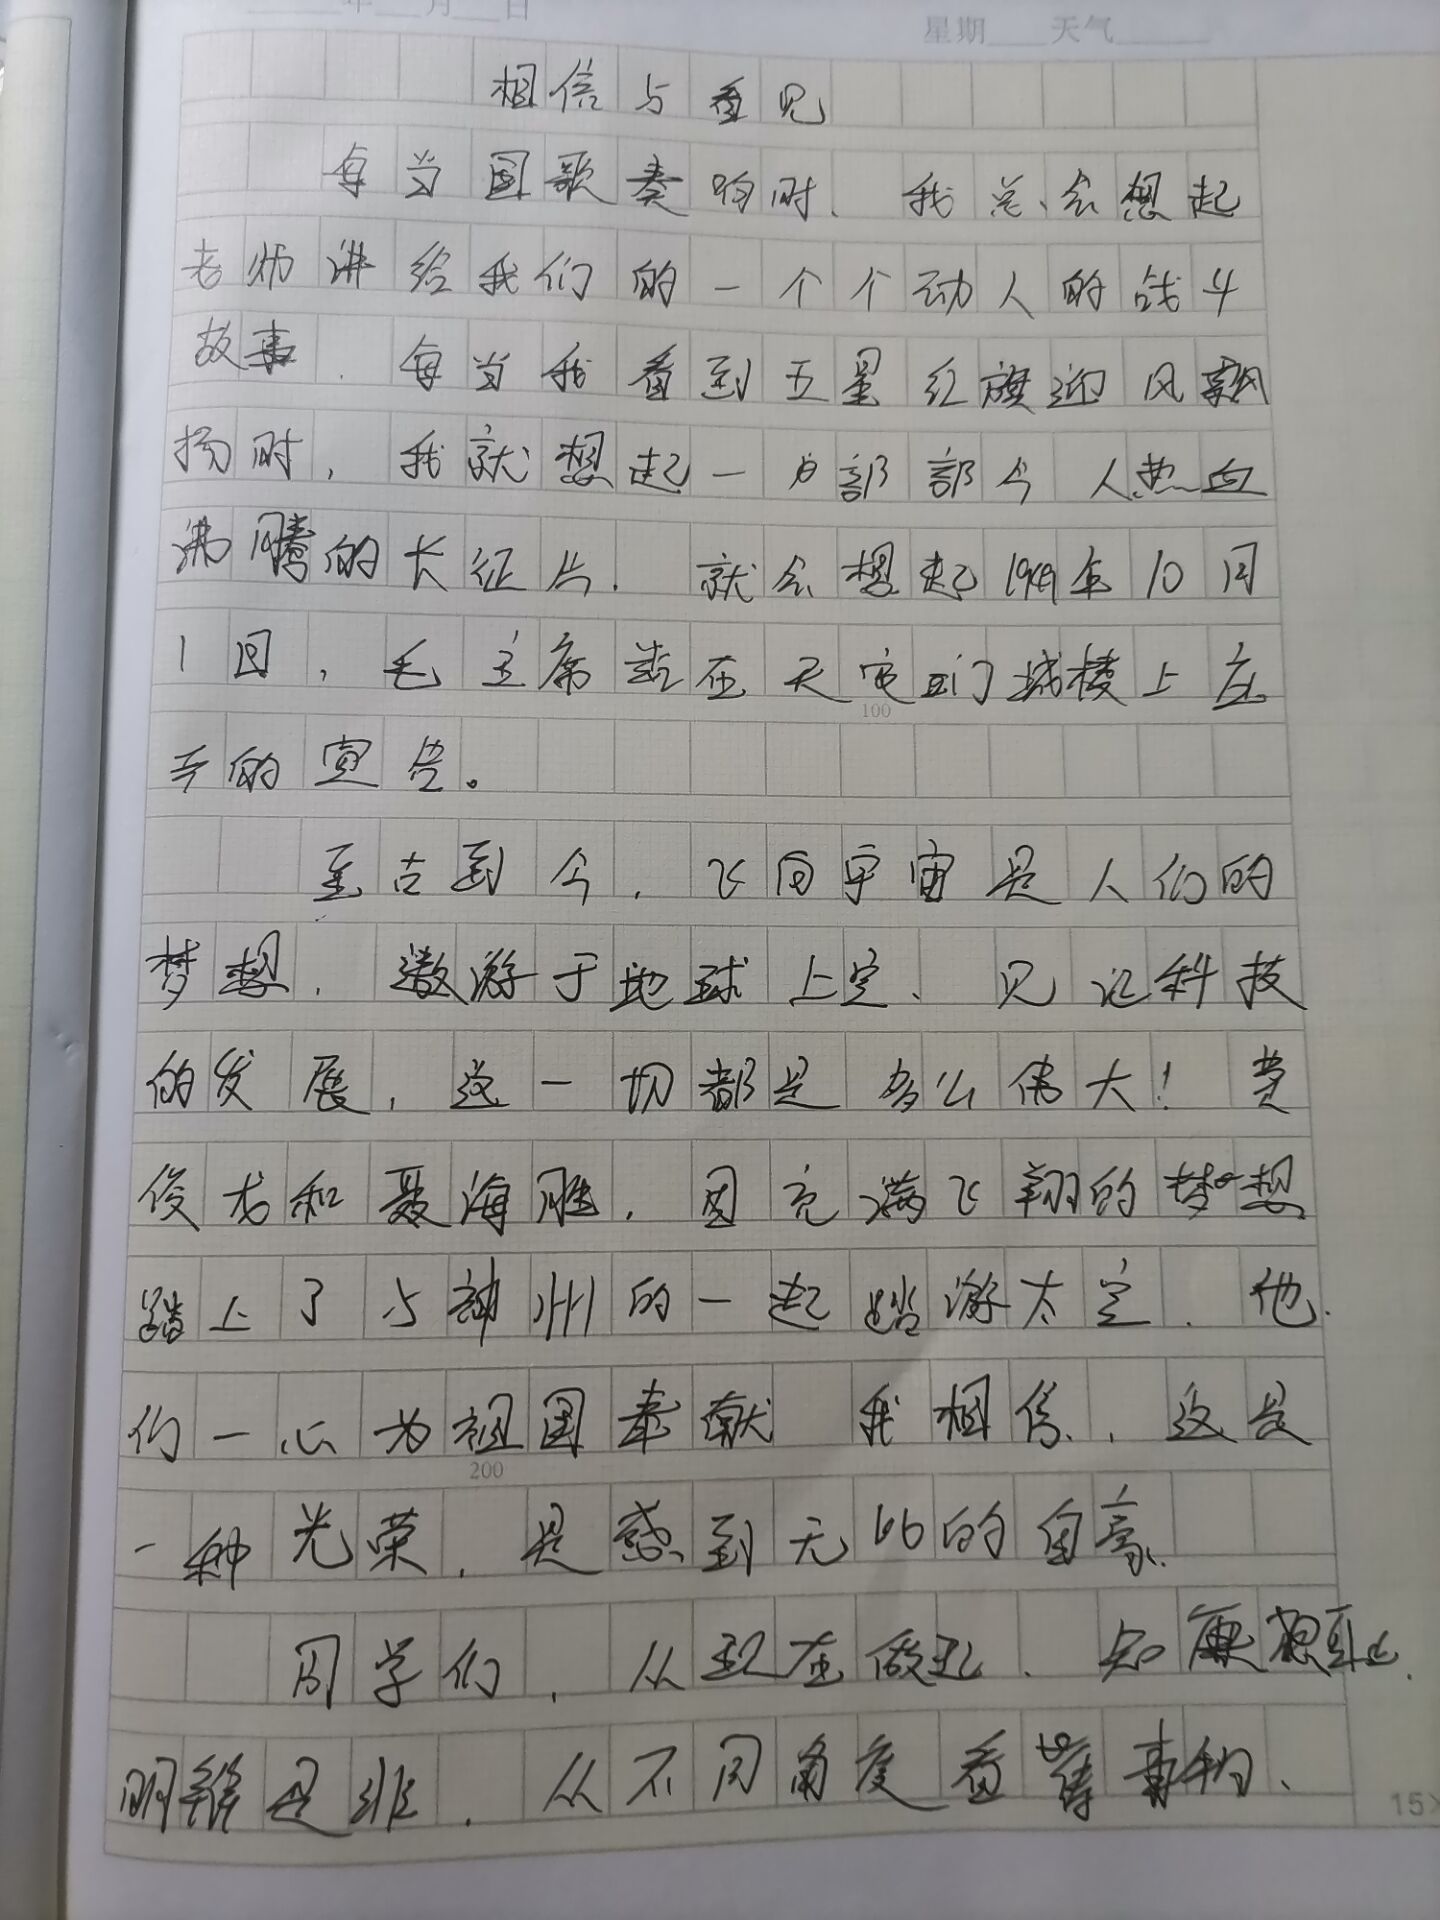 年 月 日
星期 天气
相信与看见
每当国歌奏响时、我总会想起
老师讲给我们的一个个动人的战斗
故事、每当我看到五星红旗迎风飘
扬时,我就想起一部部令人热血
沸腾的长征片.就会想起1949年10月
1日,毛主席站在天安门城楼上庄
严的宣告。
100
至古到今,飞向宇宙是人们的
梦想,遨游于地球上空、见证科技
的发展,这一切都是多么伟大!费
俊龙和聂海胜,因充满飞翔的梦想
踏上了与神州的一起遨游太空、他
们一心为祖国奉献 我相信,这是
200
一种光荣,是感到无比的自豪.
同学们,从现在做起、知廉想耻.
明辨是非,从不同角度看待事物、
15×